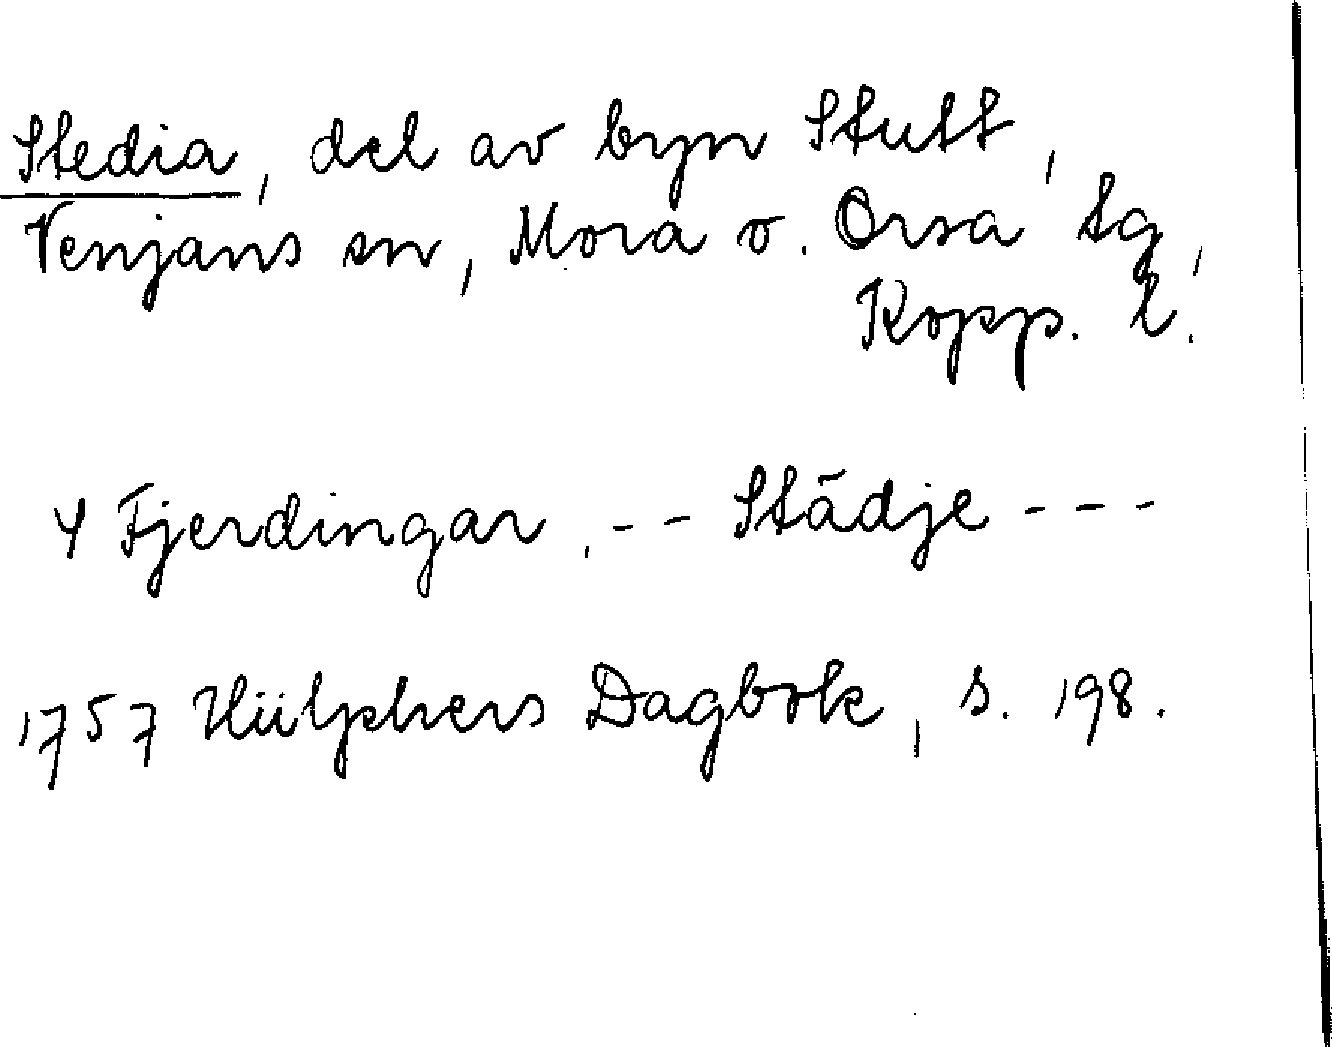 Stedia, del av byn Stutt,
Venjans sn, Mora o. Orsa tg,
Kopp. l.
4 Fjerdingar, - - Städje - - -
1757 Hülphers Dagbok, s. 198.